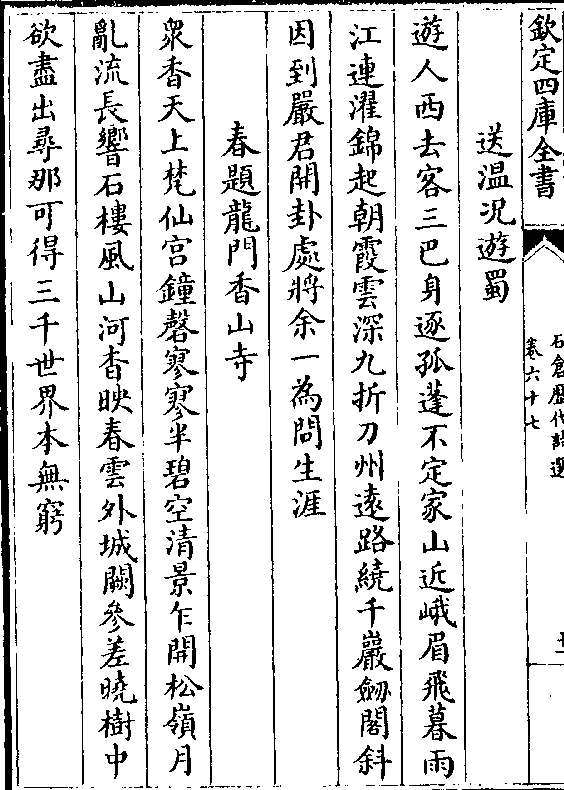 欽定四庫全書
石倉歷代詩選
卷六十七
送溫况遊蜀
遊人西去客三巴身逐孤蓬不定家山近峨眉飛暮雨
江連濯錦起朝霞雲深九折刀州遠路繞千巖劒閣斜
因到嚴君開卦處將余一為問生涯
春題龍門香山寺
衆香天上梵仙宫鐘磬寥寥半碧空清景乍開松嶺月
亂流長響石樓風山河杳映春雲外城闕參差曉樹中
欲盡出尋那可得三千世界本無窮